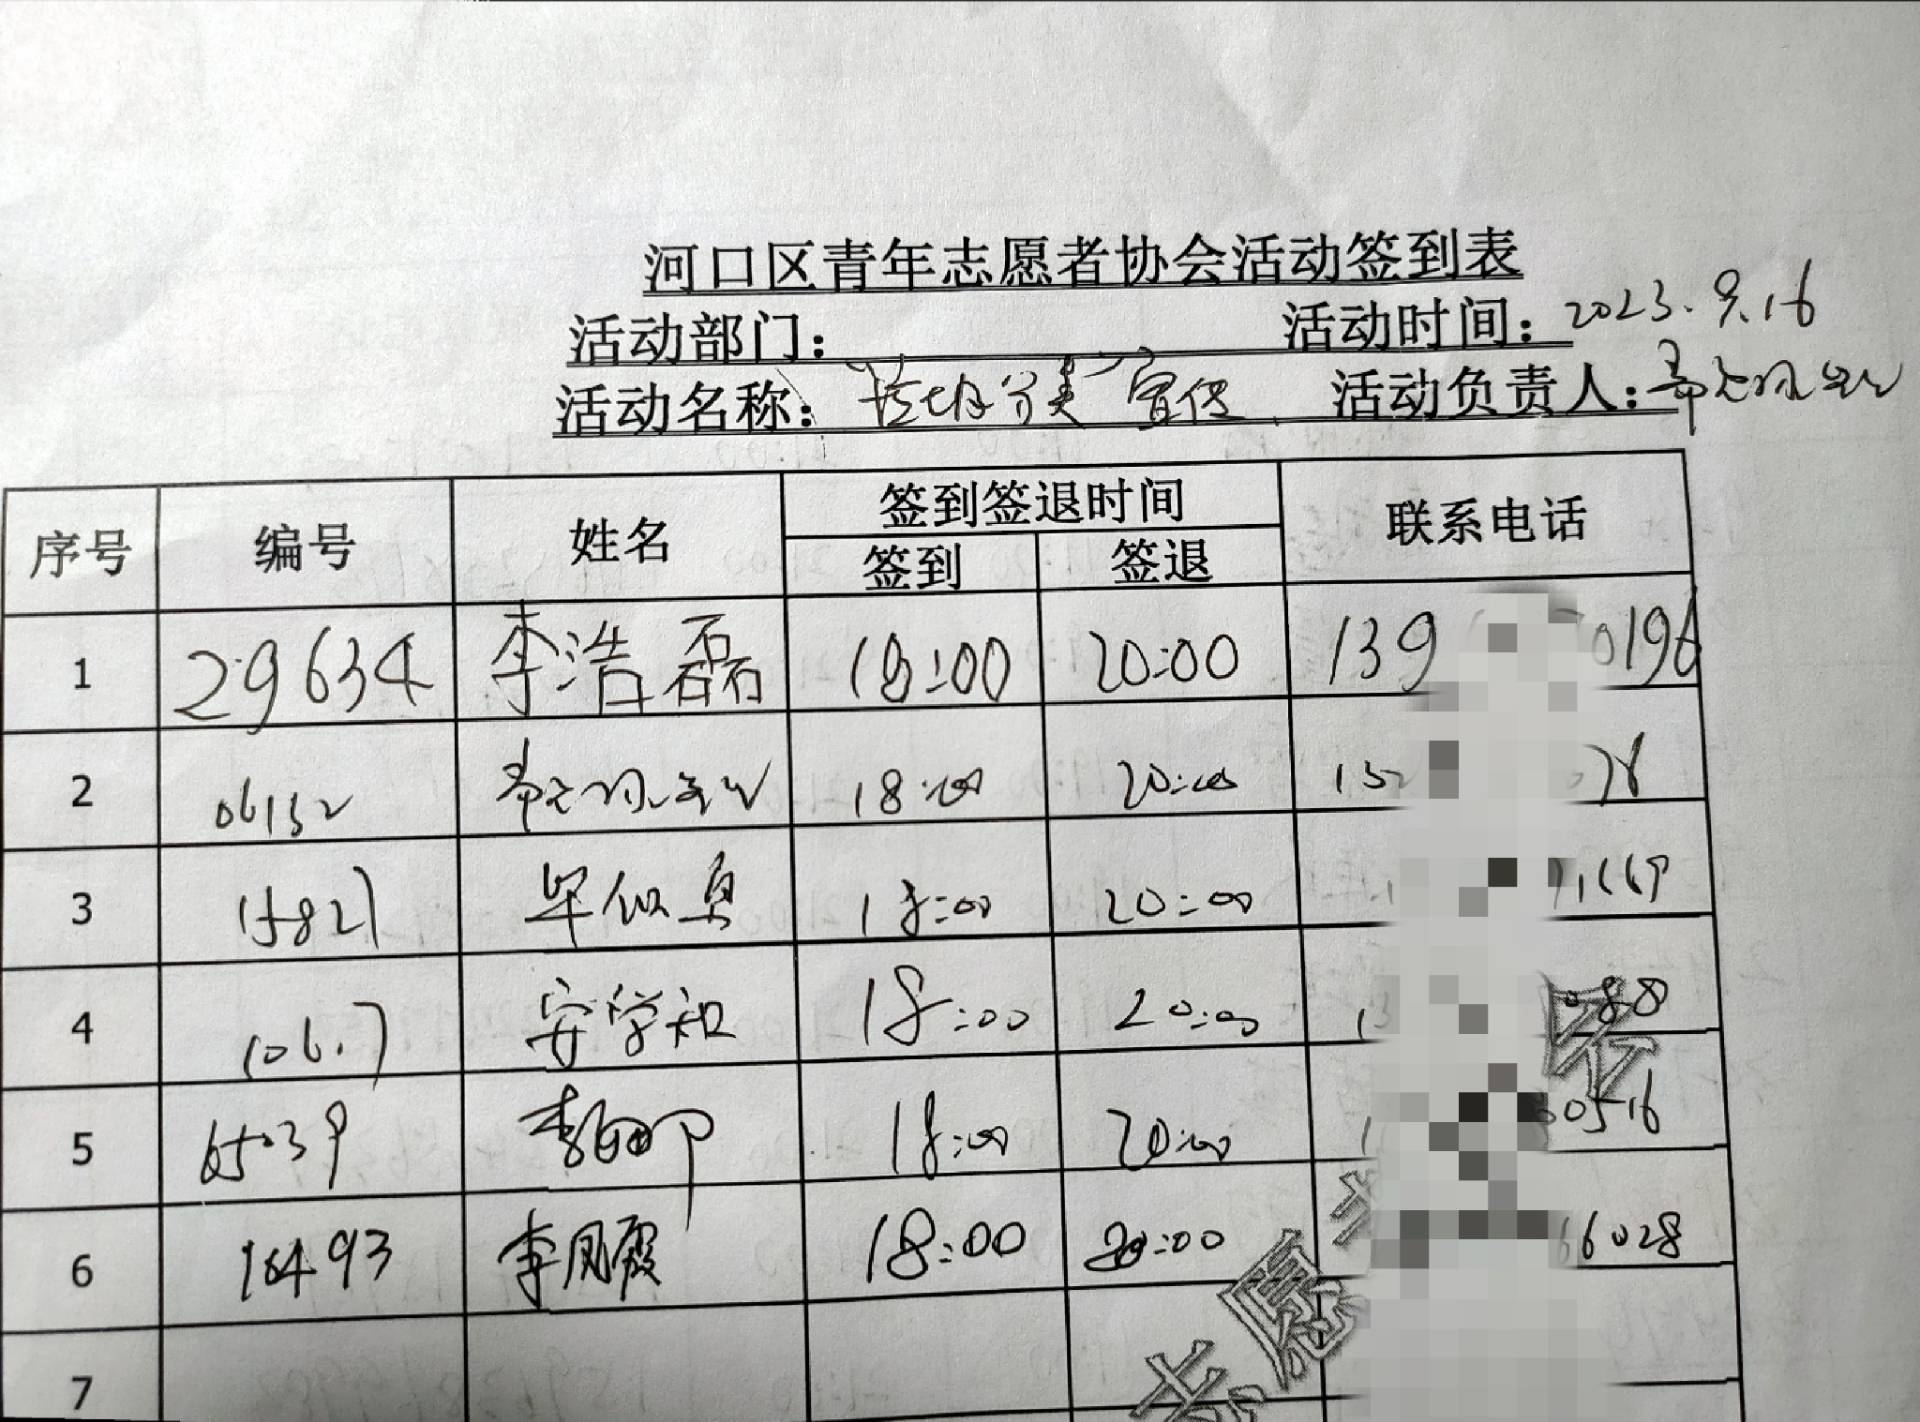 河口区青年志愿者协会活动签到表
活动部门： 活动时间：2023.9.16
活动名称："垃圾分类"宣传 活动负责人：
序号 编号 姓名 签到签退时间 联系电话
签到 签退
1 29634 李浩磊 18:00 20:00 139 0196
2 06132 18:00 20:00 152
3 15821 18:00 20:00
4 安学和 18:00 20:00 088
5 65039 18:00 20:00 60516
6 16493 李凤霞 18:00 20:00 66028
7
志愿